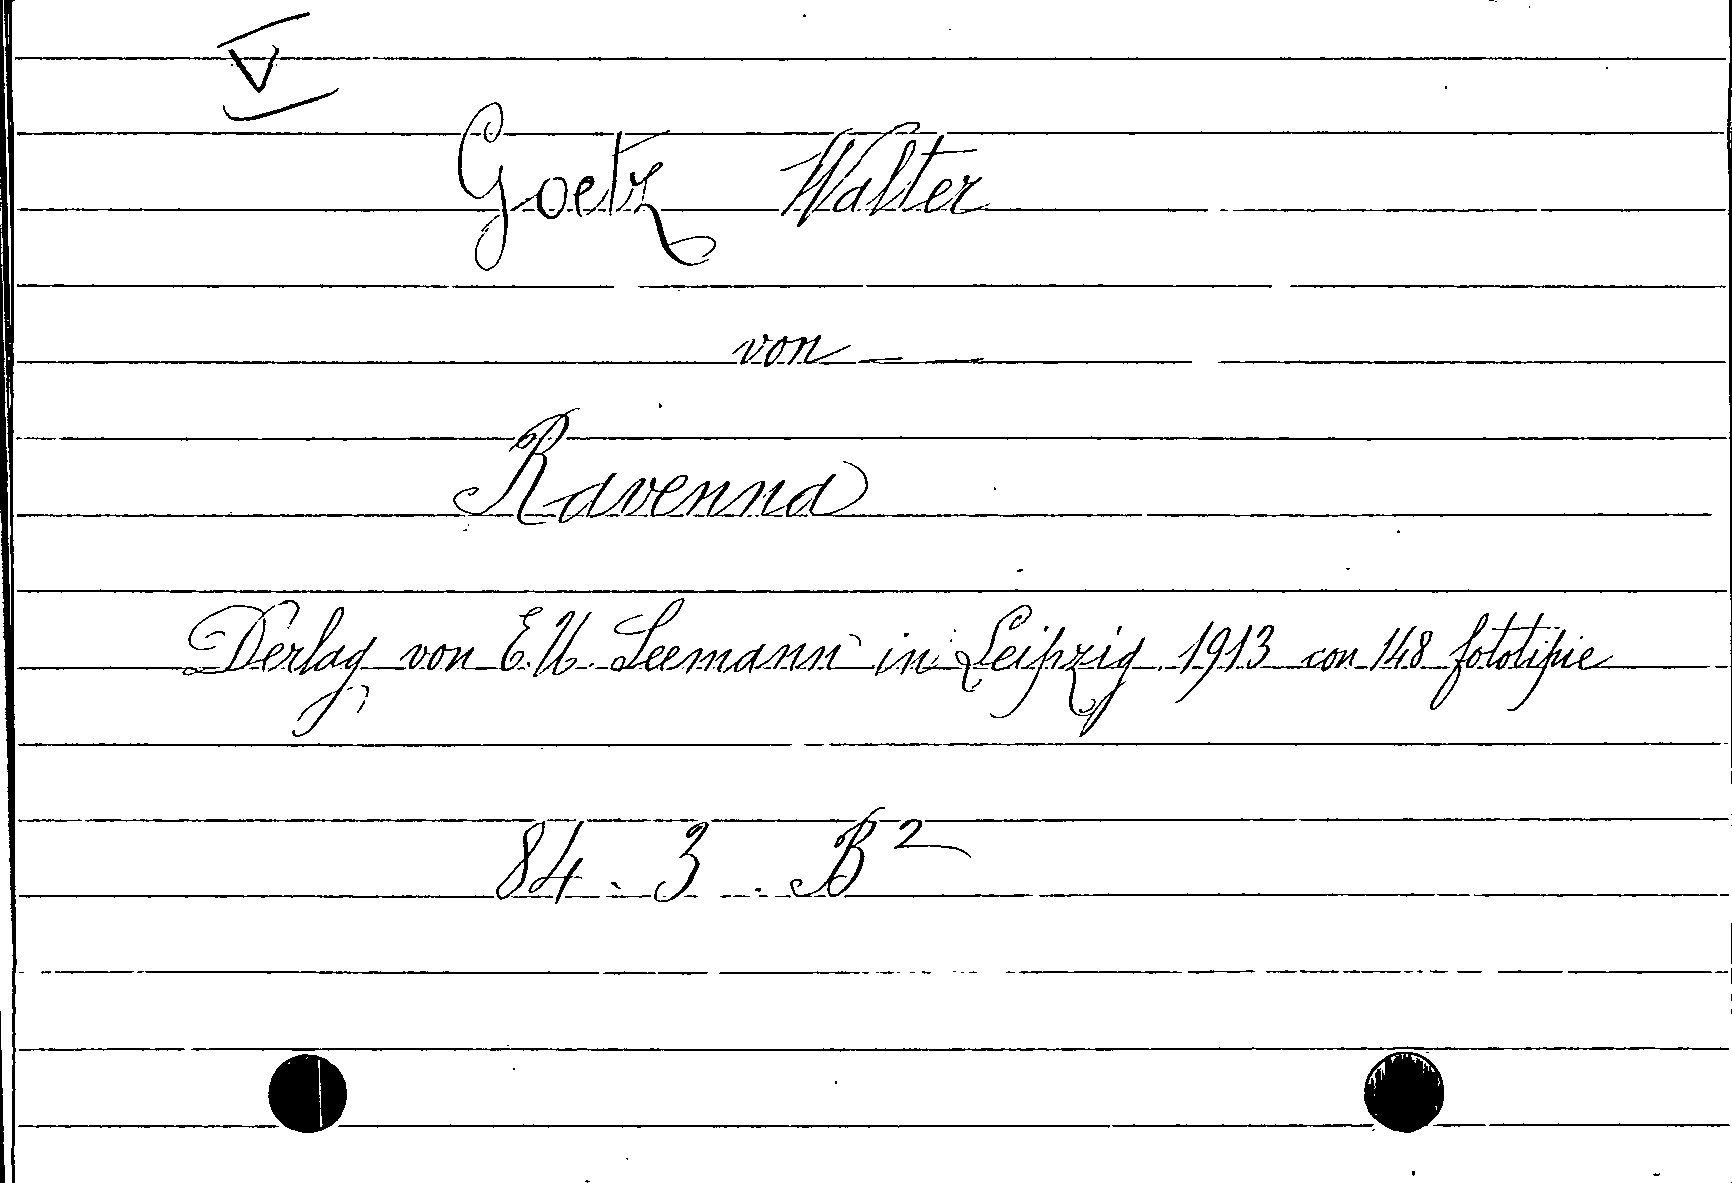 V
Goetz Walter
von — —
Ravenna
Derlag von E. U. Seemann in Leipzig 1913 con 148 fototipie
84. 3. B2